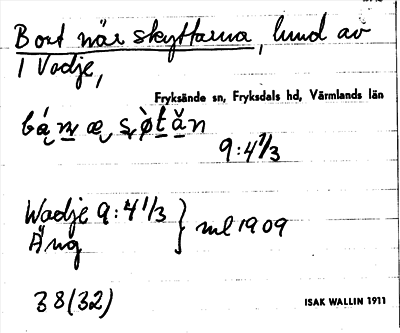 Bort när skyttarna, lund av
1 Vadje,
Fryksände sn, Fryksdals hd, Värmlands län
9:4 1/3
Wadje 9:4 1/3 } ml 1909
Äng
38 (32)
ISAK WALLIN 1911